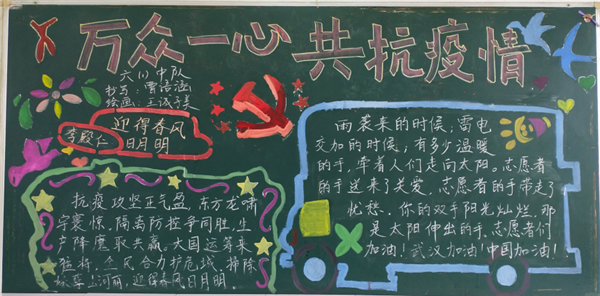 万众一心 共抗疫情
六(1)中队
抄写:曹语涵
绘画:王诚子美
迎得春风
日月明
李殿仁
抗疫攻坚正气盈,东方龙啸
宇寰惊。隔离防控争同胜,生
产降魔取共赢。大国运筹来
猛将,全民合力护危城。扫除
山河丽,迎得春风日月明。
雨袭来的时候,雷电
交加的时候,有多少温暖
的手,牵着人们走向太阳。志愿者
的手送来了关爱,志愿者的手带走了
忧愁。你的双手阳光灿烂,那
是太阳伸出的手,志愿者们
加油!武汉加油!中国加油!